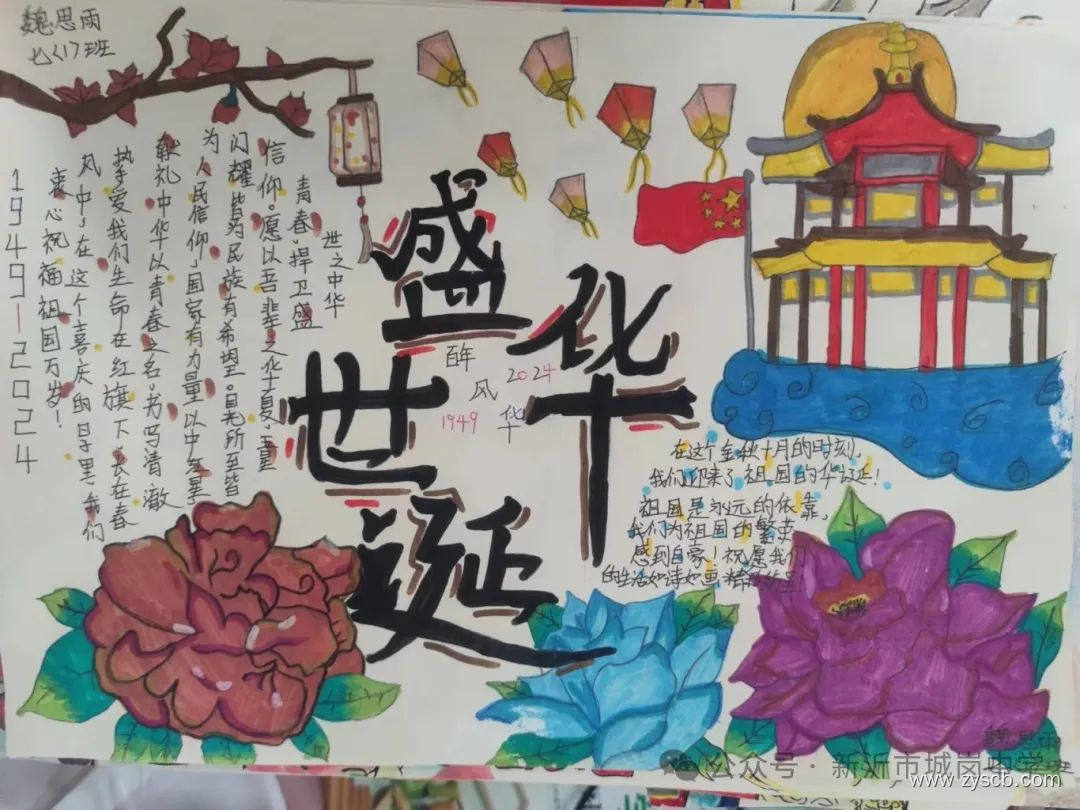 魏思雨
七(1)班
盛
世
华
诞
百年
风
华
2024
1949
世之中华
青春,捍卫盛
信仰。愿以吾辈之华夏,吾皇
闪耀皆为民族有希望。目光所至皆
为人民信仰,国家有力量以中华星
献礼中华以青春之名。书写清澈
挚爱我们生命在红旗下,长在春
风中,在这个喜庆的日子里,我们
衷心祝福祖国万岁!
1949—2024
在这个金秋十月的时刻,
我们迎来了祖国的华诞!
祖国是永远的依靠,
我们为祖国的繁荣
感到自豪!祝愿我们
的生活如诗如画精
魏思雨
公众号·新沂市城岗中学
www.zyscb.com